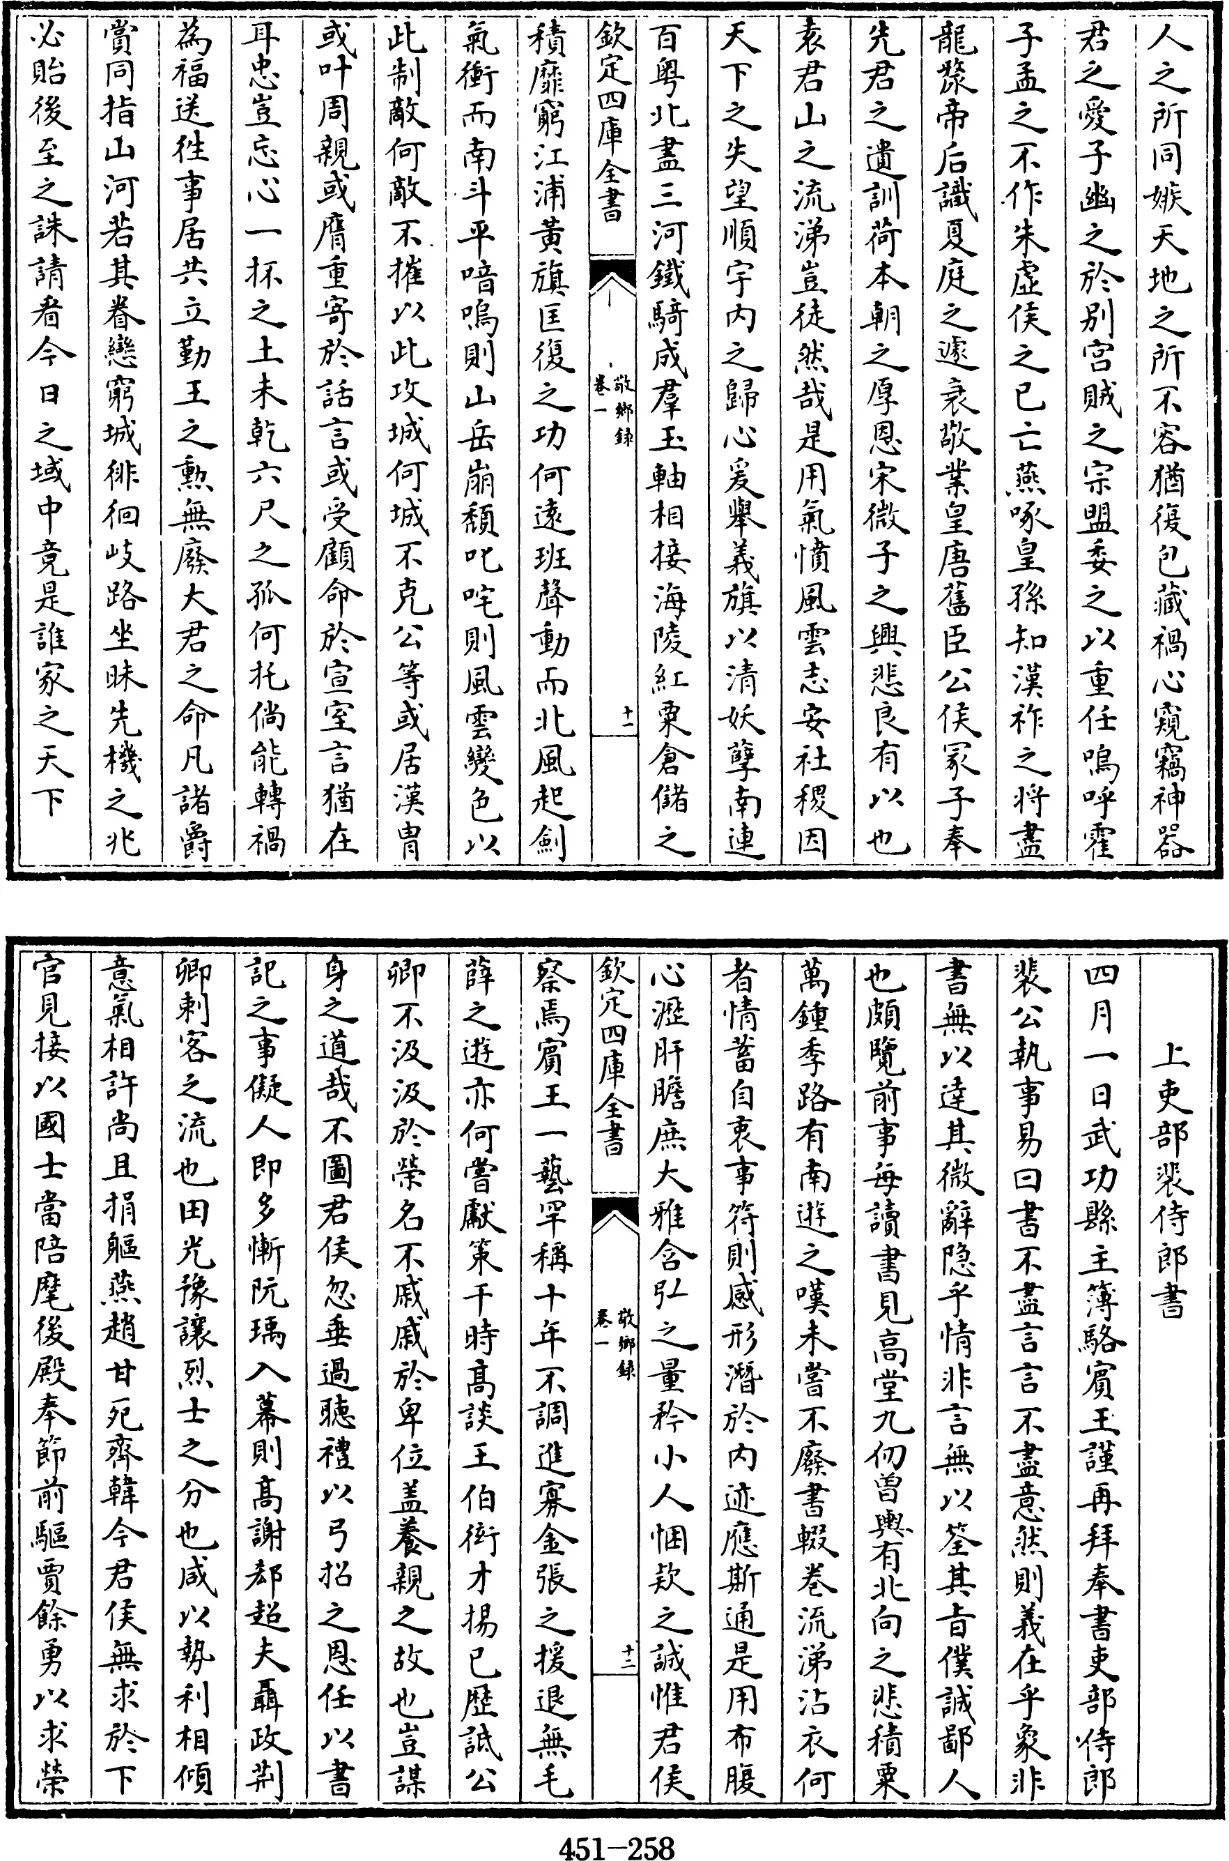 人之所同嫉天地之所不容猶復包藏禍心窺竊神器
君之愛子幽之於別宫賊之宗盟委之以重任嗚呼霍
子孟之不作朱虚侯之已亡燕啄皇孫知漢祚之将盡
龍漦帝后識夏庭之遽衰敬業皇唐舊臣公侯冡子奉
先君之遺訓荷本朝之厚恩宋微子之興悲良有以也
袁君山之流涕豈徒然哉是用氣憤風雲志安社稷因
天下之失望順宇内之歸心爰舉義旗以清妖孽南連
百粤北盡三河鐵騎成羣玉軸相接海陵紅粟倉儲之
欽定四庫全書
敬鄉録
卷一
十一
積靡窮江浦黄旗匡復之功何遠班聲動而北風起劍
氣衝而南斗平喑嗚則山岳崩頽叱咤則風雲變色以
此制敵何敵不摧以此攻城何城不克公等或居漢胄
或叶周親或膺重寄於話言或受顧命於宣室言猶在
耳忠豈忘心一抔之土未乾六尺之孤何托倘能轉禍
為福送徃事居共立勤王之勲無廢大君之命凡諸爵
賞同指山河若其眷戀窮城徘徊岐路坐昧先機之兆
必貽後至之誅請看今日之域中竟是誰家之天下
上吏部裴侍郎書
四月一日武功縣主簿駱賓王謹再拜奉書吏部侍郎
裴公執事易曰書不盡言言不盡意然則義在乎象非
書無以達其微辭隐乎情非言無以筌其旨僕誠鄙人
也頗覽前事每讀書見高堂九仞曽輿有北向之悲積粟
萬鍾季路有南遊之嘆未嘗不廢書輟卷流涕沾衣何
者情蓄自衷事符則感形潛於内迹應斯通是用布腹
心瀝肝膽庶大雅含弘之量矜小人悃欵之誠惟君侯
欽定四庫全書
敬鄉録
卷一
十二
察焉賓王一藝罕稱十年不調進寡金張之援退無毛
薛之遊亦何嘗獻策干時高談王伯衒才揚已歴詆公
卿不汲汲於榮名不戚戚於卑位盖養親之故也豈謀
身之道哉不圖君侯忽垂過聽禮以弓招之恩任以書
記之事儗人即多慚阮瑀入幕則高謝郗超夫聶政荆
卿刺客之流也田光豫讓烈士之分也咸以勢利相傾
意氣相許尚且捐軀燕趙甘死齊韓今君侯無求於下
官見接以國士當陪麾後殿奉節前驅賈餘勇以求榮
451-258